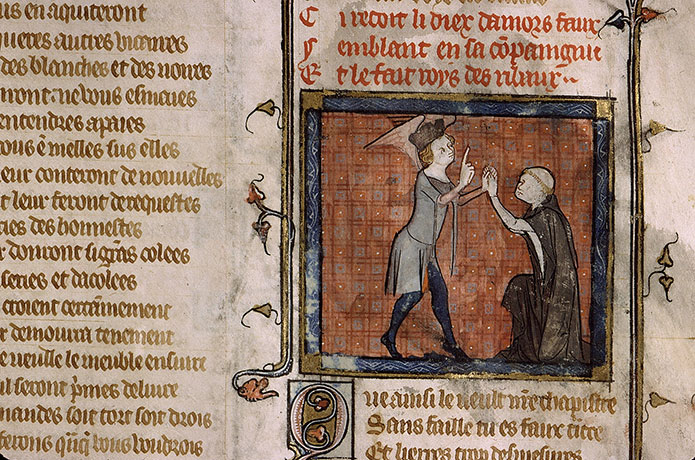 us en aquiteront
queres autres victaires
des blanches et des noires
uront: ne vous esmaiés
entendres apaiés
ous ē melles sus elles
eur conteront de nouvelles
t leur feront derequestes
des honnestes
r donront si grãs colees
series et dacolees
croient certainement
r demourra tenement
e vueille le meuble ensuire
ul seront p̃mes delivre
mandes soit tort soit drois
ferons qũq̃ vous voudrois
Ci recoit li diex damors faux
Semblant en sa cõpaingnie
Et le fait roys des ribaux
Que ainsi le veult nr̃e chapistre
Sans faille tu es faux titre
Et lierres trop desmesures